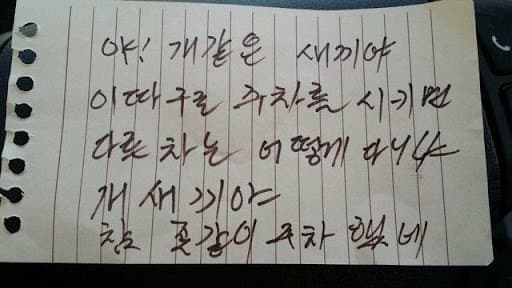 야! 개같은 새끼야
이따구로 주차를 시키면
다른 차는 어떻게 다니냐
개새끼야
참 좆같이 주차 했네